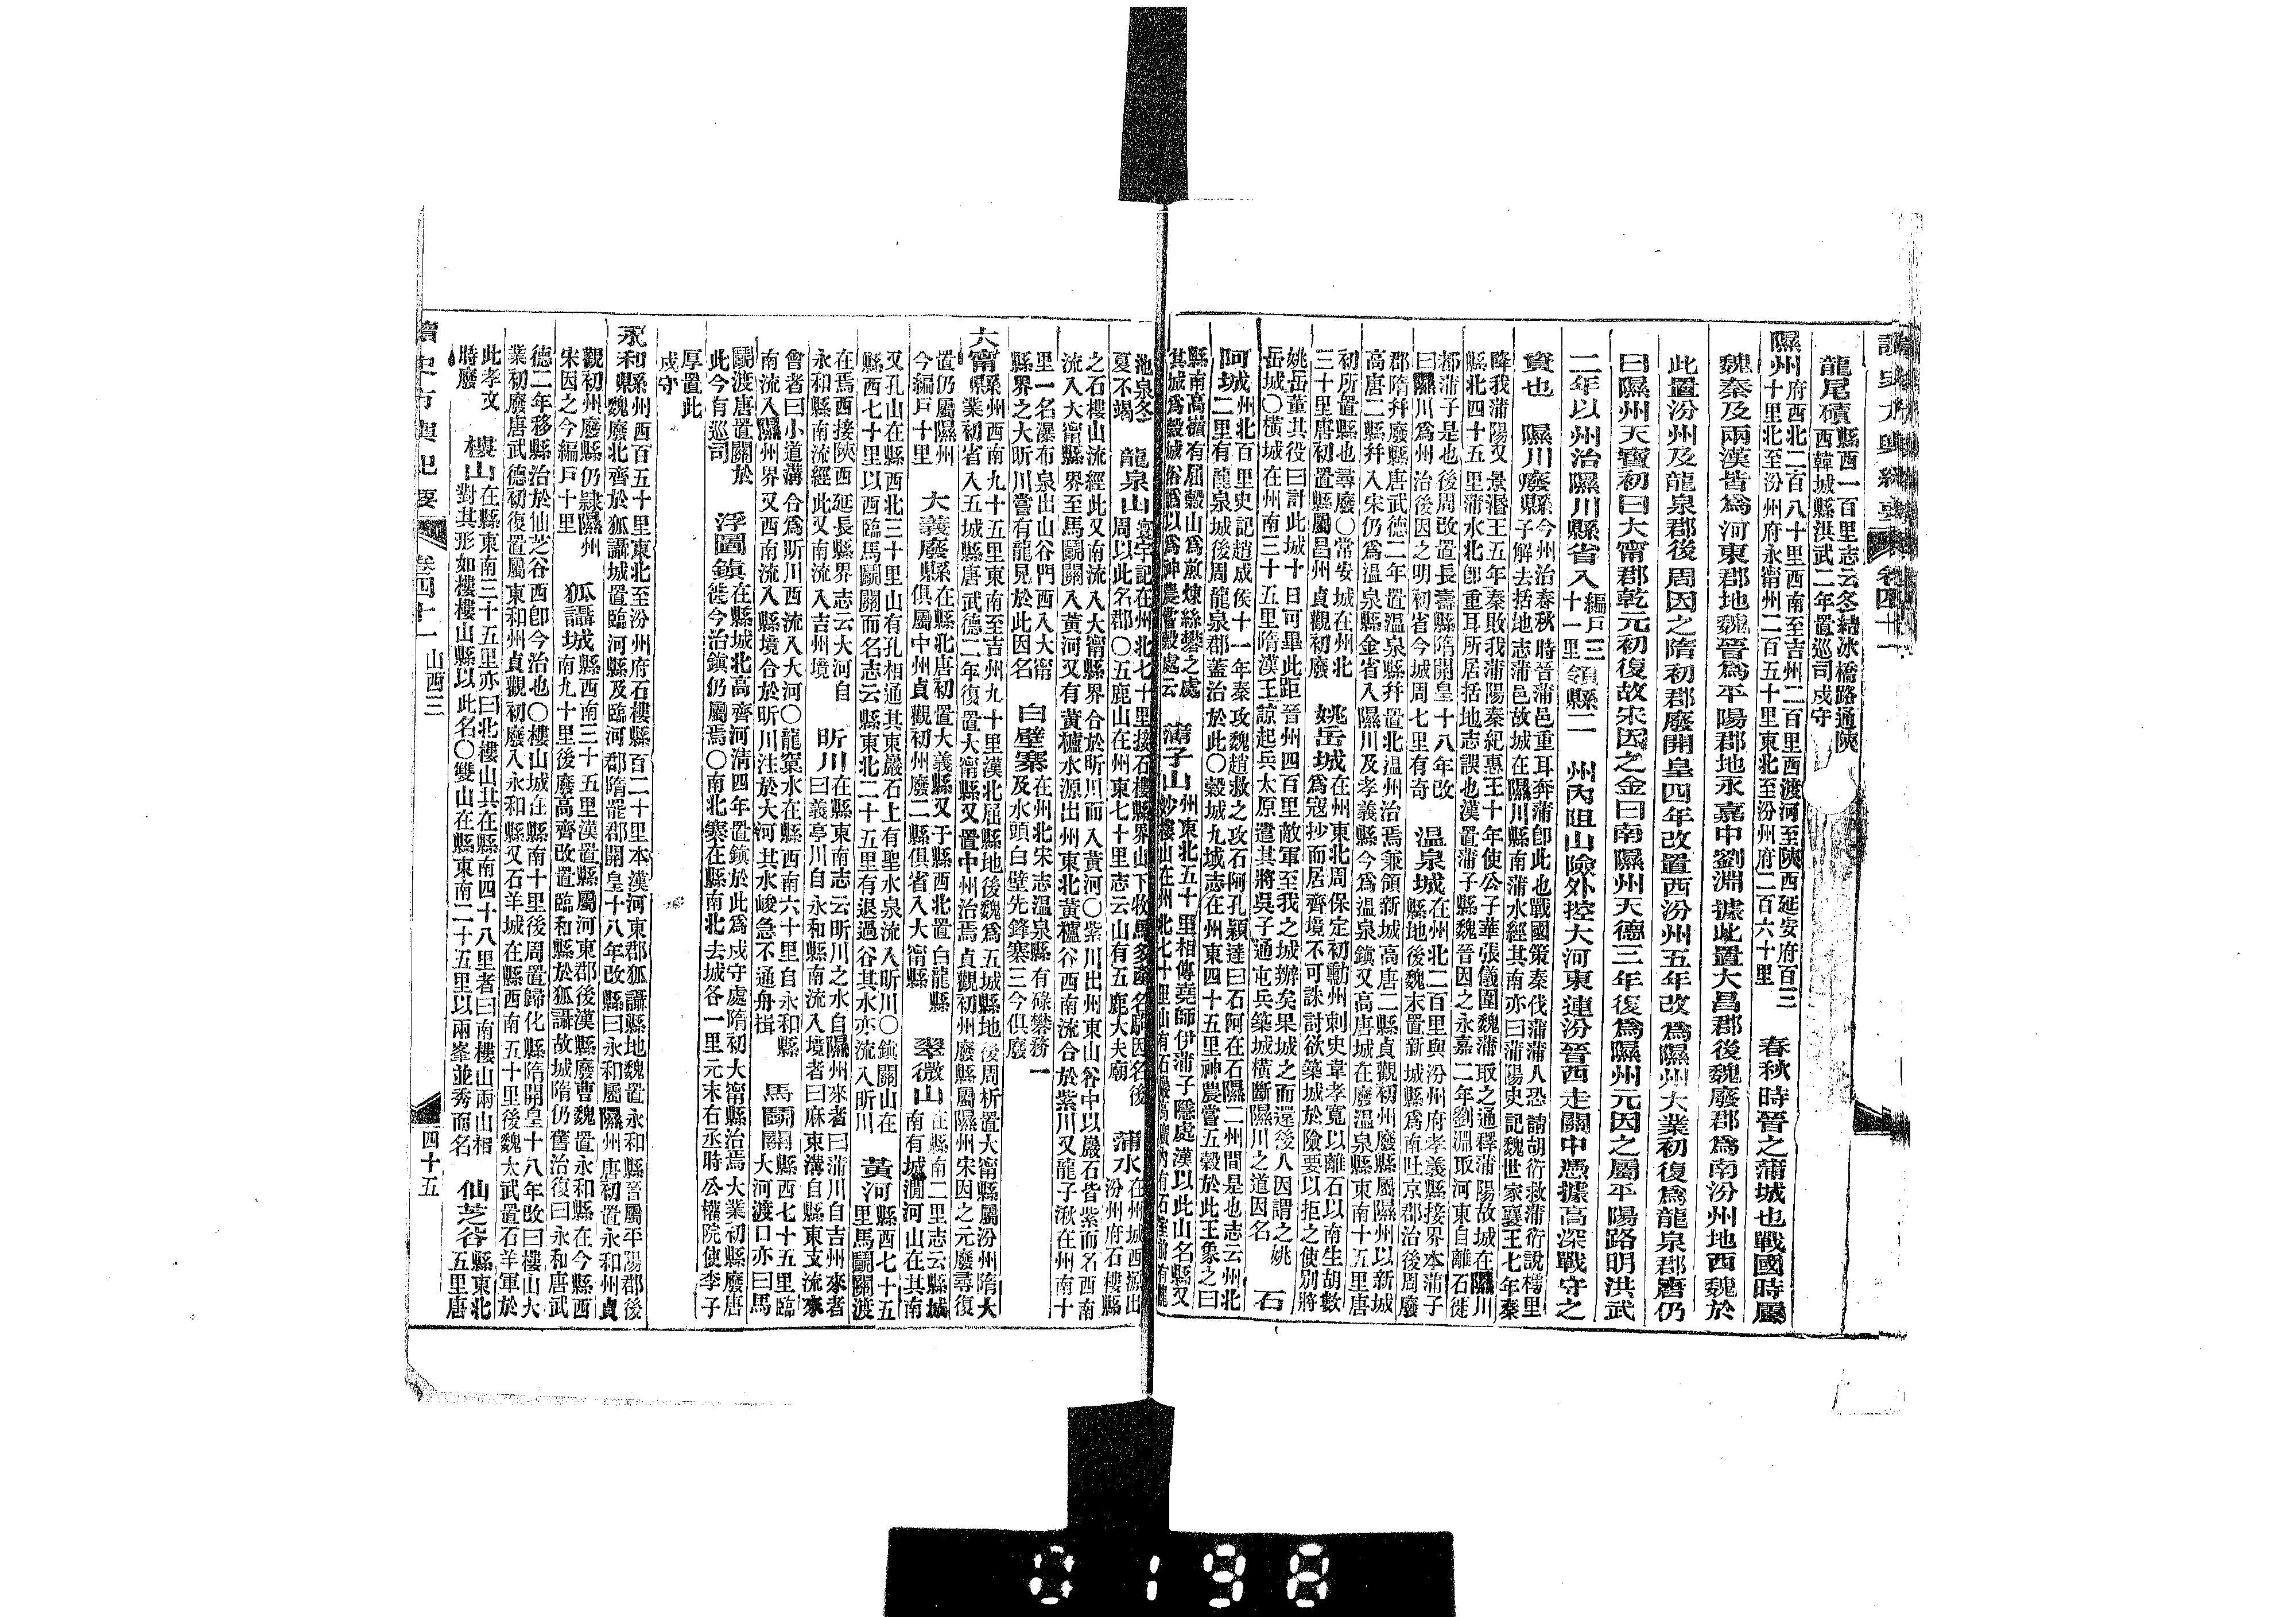 讀史方輿紀要 卷四十一
龍尾磧縣西一百里志云冬結冰橋路通陝
西韓城縣洪武二年置巡司戍守
隰州府西北二百八十里西南至吉州二百里西渡河至陝西延安府百三
十里北至汾州府永甯州二百五十里東北至汾州府二百六十里
春秋時晉之蒲城也戰國時屬
魏秦及兩漢皆爲河東郡地魏晉爲平陽郡地永嘉中劉淵據此置大昌郡後魏廢郡爲南汾州地西魏於
此置汾州及龍泉郡後周因之隋初郡廢開皇四年改置西汾州五年改爲隰州大業初復爲龍泉郡唐仍
曰隰州天寶初曰大甯郡乾元初復故宋因之金曰南隰州天德三年復爲隰州元因之屬平陽路明洪武
二年以州治隰川縣省入編戶三
十一里領縣二 州內阻山險外控大河東連汾晉西走關中憑據高深戰守之
資也 隰川廢縣今州治春秋時晉蒲邑重耳奔蒲卽此也戰國策秦伐蒲蒲人恐請胡衍救蒲衍說樗里
子解去括地志蒲邑故城在隰川縣南蒲水經其南亦曰蒲陽史記魏世家襄王七年秦
降我蒲陽又景湣王五年秦敗我蒲陽秦紀惠王十年使公子華張儀圍魏蒲取之通釋蒲陽故城在隰川
縣北四十五里蒲水北卽重耳所居括地志誤也漢置蒲子縣魏晉因之永嘉二年劉淵取河東自離石徙
都蒲子是也後周改置長壽縣隋開皇十八年改
曰隰川爲州治後因之明初省今城周七里有奇
溫泉城在州北二百里與汾州府孝義縣接界本蒲子
縣地後魏末置新城縣爲南吐京郡治後周廢
郡隋幷廢縣唐武德二年置溫泉縣幷置北溫州治焉兼領新城高唐二縣貞觀初州廢縣屬隰州以新城
高唐二縣幷入宋仍爲溫泉縣金省入隰川及孝義縣今爲溫泉鎭又高唐城在廢溫泉縣東南十五里唐
初所置縣也尋廢〇常安城在州北
三十里唐初置縣屬昌州貞觀初廢
姚岳城在州東北周保定初勳州刺史韋孝寬以離石以南生胡數
爲寇抄而居齊境不可誅討欲築城於險要以拒之使別將
姚岳董其役曰計此城十日可畢此距晉州四百里敵軍至我之城辦矣果城之而還後人因謂之姚
岳城〇橫城在州南三十五里隋漢王諒起兵太原遣其將吳子通屯兵築城橫斷隰川之道因名
石
阿城州北百里史記趙成侯十一年秦攻魏趙救之攻石阿孔穎達曰石阿在石隰二州間是也志云州北
二里有龍泉城後周龍泉郡蓋治於此〇穀城九城志在州東四十五里神農嘗五穀於此王象之曰
縣南高嶺有屈穀山爲煎煉絲礬之處
其城爲穀城俗譌以爲神農嘗穀處云
蒲子山州東北五十里相傳堯師伊蒲子隱處漢以此山名縣又
池泉冬
夏不竭 龍泉山寰宇記在州北七十里接石樓縣界山下牧馬多產名駒因名後
周以此名郡〇五鹿山在州東七十里志云山有五鹿大夫廟
蒲水在州城西源出
汾州府石樓縣
之石樓山流經此又南流入大甯縣界合於昕川而入黃河〇紫川出州東山谷中以巖石皆紫而名西南
流入大甯縣界至馬鬬關入黃河又有黃櫨水源出州東北黃櫨谷西南流合於紫川又龍子湫在州南十
里一名瀑布泉出山谷門西入大甯
縣界之大昕川嘗有龍見於此因名
白壁寨在州北宋志溫泉縣有碌礬務一
及水頭白壁先鋒寨三今俱廢
大甯縣州西南九十五里東南至吉州九十里漢北屈縣地後魏爲五城縣地後周析置大甯縣屬汾州隋大
業初省入五城縣唐武德二年復置大甯縣又置中州治焉貞觀初州廢縣屬隰州宋因之元廢尋復
置仍屬隰州
今編戶十里
大義廢縣在縣北唐初置大義縣又于縣西北置白龍縣
俱屬中州貞觀初州廢二縣俱省入大甯縣
翠微山在縣南二里志云縣城
南有城澗河山在其南
又孔山在縣西北三十里山有孔相通其東巖石上有聖水泉流入昕川〇鎭關山在
縣西七十里以西臨馬鬬關而名志云縣東北二十五里有退過谷其水亦流入昕川
黃河縣西七十五
里馬鬬關渡
在焉西接陝西延長縣界志云大河自
永和縣南流經此又南流入吉州境
昕川在縣東南志云昕川之水自隰州來者曰蒲川自吉州來者
曰義亭川自永和縣南流入境者曰麻束溝自縣東支流來
會者曰小道溝合爲昕川西流入大河〇龍窠水在縣西南六十里自永和縣
南流入隰州界又西南流入縣境合於昕川注於大河其水峻急不通舟楫
馬鬬關縣西七十五里臨
大河渡口亦曰馬
鬬渡唐置關於
此今有巡司
浮圖鎭在縣城北高齊河淸四年置鎭於此爲戍守處隋初大甯縣治焉大業初縣廢唐
徙今治鎭仍屬焉〇南北寨在縣南北去城各一里元末右丞時公權院使李子
厚置此
戍守
永和縣州西百五十里東北至汾州府石樓縣百二十里本漢河東郡狐讘縣地魏置永和縣晉屬平陽郡後
魏廢北齊於狐讘城置臨河縣及臨河郡隋罷郡開皇十八年改縣曰永和屬隰州唐初置永和州貞
觀初州廢縣仍隸隰州
宋因之今編戶十里
狐讘城縣西南三十五里漢置縣屬河東郡後漢縣廢曹魏置永和縣在今縣西
南九十里後廢高齊改置臨和縣於狐讘故城隋仍舊治復曰永和唐武
德二年移縣治於仙芝谷西卽今治也〇樓山城在縣南十里後周置歸化縣隋開皇十八年改曰樓山大
業初廢唐武德初復置屬東和州貞觀初廢入永和縣又石羊城在縣西南五十里後魏太武置石羊軍於
此孝文
時廢
樓山在縣東南三十五里亦曰北樓山其在縣南四十八里者曰南樓山兩山相
對其形如樓樓山縣以此名〇雙山在縣東南二十五里以兩峯並秀而名
仙芝谷縣東北
五里唐
讀史方輿紀要 卷四十一 山西三 四十五
0198